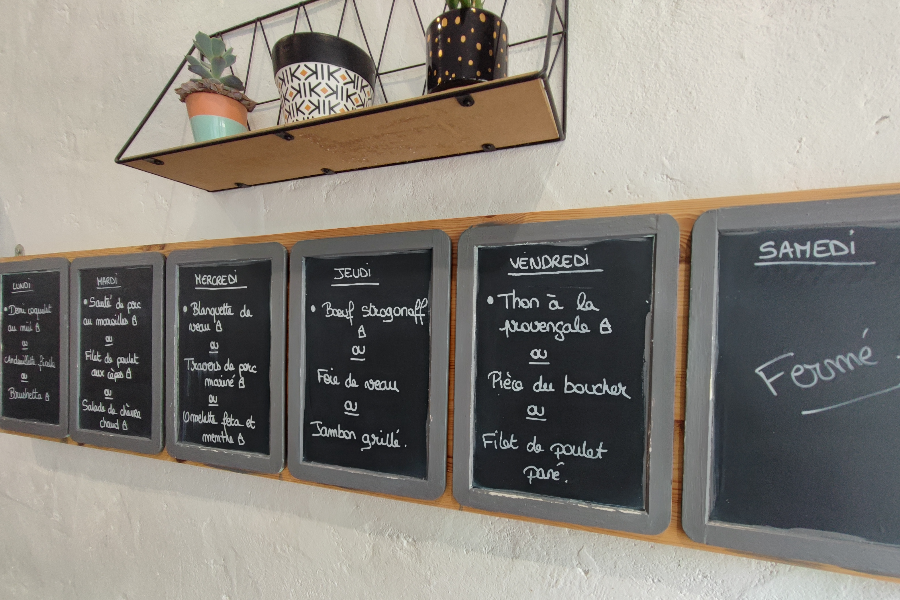 LUNDI
• Demi coquelet
au miel
ou
Andouillette ficelle
ou
Bruschetta
MARDI
• Sauté de porc
au morilles
ou
Filet de poulet
aux cèpes
ou
Salade de chèvre
chaud
MERCREDI
• Blanquette de
veau
ou
Travers de porc
mariné
ou
Omelette feta et
menthe
JEUDI
• Bœuf strogonoff
ou
Foie de veau
ou
Jambon grillé.
VENDREDI
• Thon à la
provençale
ou
Pièce du boucher
ou
Filet de poulet
pané.
SAMEDI
Fermé.